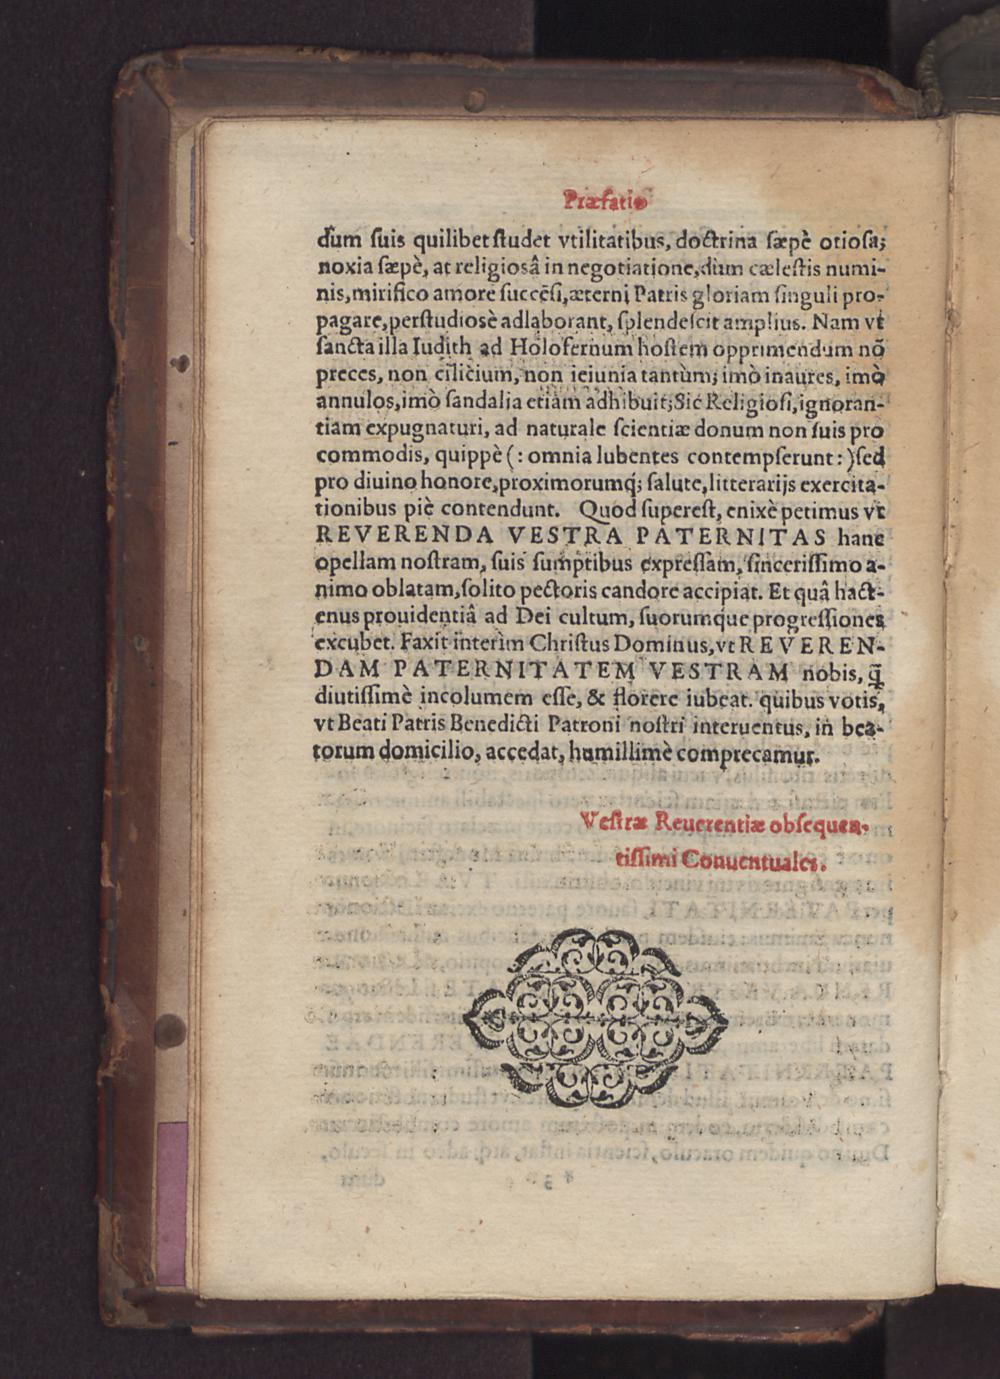 Præfatio
dum suis quilibet studet vtilitatibus, doctrina sæpè otiosa;
noxia sæpè, at religiosâ in negotiatione, dùm cælestis numi-
nis, mirifico amore succẽsi, æterni Patris gloriam singuli pro-
pagare, perstudiosè adlaborant, splendescit amplius. Nam vt
sancta illa Iudith ad Holofernum hostem opprimendum nõ
preces, non cilicium, non ieiunia tantùm; imò inaures, imò
annulos, imò sandalia etiàm adhibuit; Sic Religiosi, ignoran-
tiam expugnaturi, ad naturale scientiæ donum non suis pro
commodis, quippè (: omnia lubentes contempserunt :) sed
pro diuino honore, proximorumq́; salute, litterarijs exercita-
tionibus piè contendunt. Quod superest, enixè petimus vt
REVERENDA VESTRA PATERNITAS hanc
opellam nostram, suis sumptibus expressam, sincerissimo a-
nimo oblatam, solito pectoris candore accipiat. Et quâ hact-
enus prouidentiâ ad Dei cultum, suorumque progressiones
excubet. Faxit interìm Christus Dominus, vt REVEREN-
DAM PATERNITATEM VESTRAM nobis, q̃
diutissimè incolumem esse, & florere iubeat. quibus votis,
vt Beati Patris Benedicti Patroni nostri interuentus, in bea-
torum domicilio, accedat, humillimè comprecamur.
Vestræ Reuerentiæ obsequen-
tissimi Conuentuales.